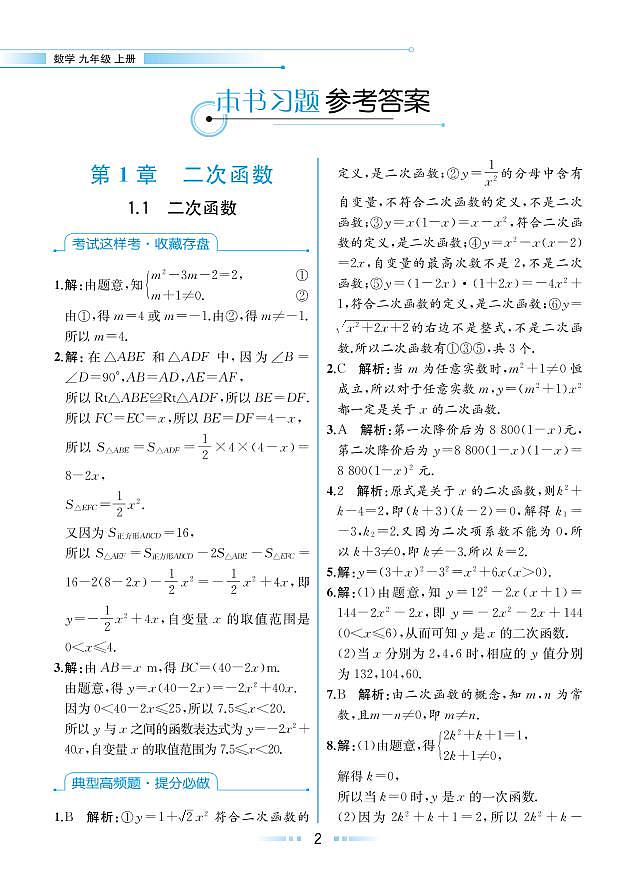 数学 九年级 上册
本书习题 参考答案
第 1 章 二次函数
1.1 二次函数
考试这样考·收藏存盘
1.解:由题意,知{m²-3m-2=2, ①
m+1≠0. ②
由①,得 m=4 或 m=-1.由②,得 m≠-1.
所以 m=4.
2.解:在△ABE 和△ADF 中,因为∠B=
∠D=90°,AB=AD,AE=AF,
所以 Rt△ABE≌Rt△ADF,所以 BE=DF.
所以 FC=EC=x,所以 BE=DF=4-x,
所以 S△ABE=S△ADF=1/2×4×(4-x)=
8-2x,
S△EFC=1/2x².
又因为 S正方形ABCD=16,
所以 S△AEF=S正方形ABCD-2S△ABE-S△EFC=
16-2(8-2x)-1/2x²=-1/2x²+4x,即
y=-1/2x²+4x,自变量 x 的取值范围是
0<x≤4.
3.解:由 AB=x m,得 BC=(40-2x)m.
由题意,得 y=x(40-2x)=-2x²+40x.
因为 0<40-2x≤25,所以 7.5≤x<20.
所以 y 与 x 之间的函数表达式为 y=-2x²+
40x,自变量 x 的取值范围为 7.5≤x<20.
典型高频题·提分必做
1.B 解析:①y=1+√2x² 符合二次函数的
定义,是二次函数;②y=1/x²的分母中含有
自变量,不符合二次函数的定义,不是二次
函数;③y=x(1-x)=x-x²,符合二次函
数的定义,是二次函数;④y=x²-x(x-2)
=2x,自变量的最高次数不是 2,不是二次
函数;⑤y=(1-2x)·(1+2x)=-4x²+
1,符合二次函数的定义,是二次函数;⑥y=
√(x²+2x+2)的右边不是整式,不是二次函
数.所以二次函数有①③⑤,共 3 个.
2.C 解析:当 m 为任意实数时,m²+1≠0 恒
成立,所以对于任意实数 m,y=(m²+1)x²
都一定是关于 x 的二次函数.
3.A 解析:第一次降价后为 8 800(1-x)元,
第二次降价后为 y=8 800(1-x)(1-x)=
8 800(1-x)² 元.
4.2 解析:原式是关于 x 的二次函数,则k²+
k-4=2,即(k+3)(k-2)=0,解得 k₁=
-3,k₂=2.又因为二次项系数不能为 0,所
以 k+3≠0,即 k≠-3.所以 k=2.
5.解:y=(3+x)²-3²=x²+6x(x>0).
6.解:(1)由题意,知 y=12²-2x(x+1)=
144-2x²-2x,即 y=-2x²-2x+144
(0<x≤6),从而可知 y 是 x 的二次函数.
(2)当 x 分别为 2,4,6 时,相应的 y 值分别
为 132,104,60.
7.B 解析:由二次函数的概念,知 m,n 为常
数,且m-n≠0,即 m≠n.
8.解:(1)由题意,得{2k²+k+1=1,
2k+1≠0,
解得 k=0,
所以当 k=0 时,y 是 x 的一次函数.
(2)因为 2k²+k+1=2,所以 2k²+k-
2